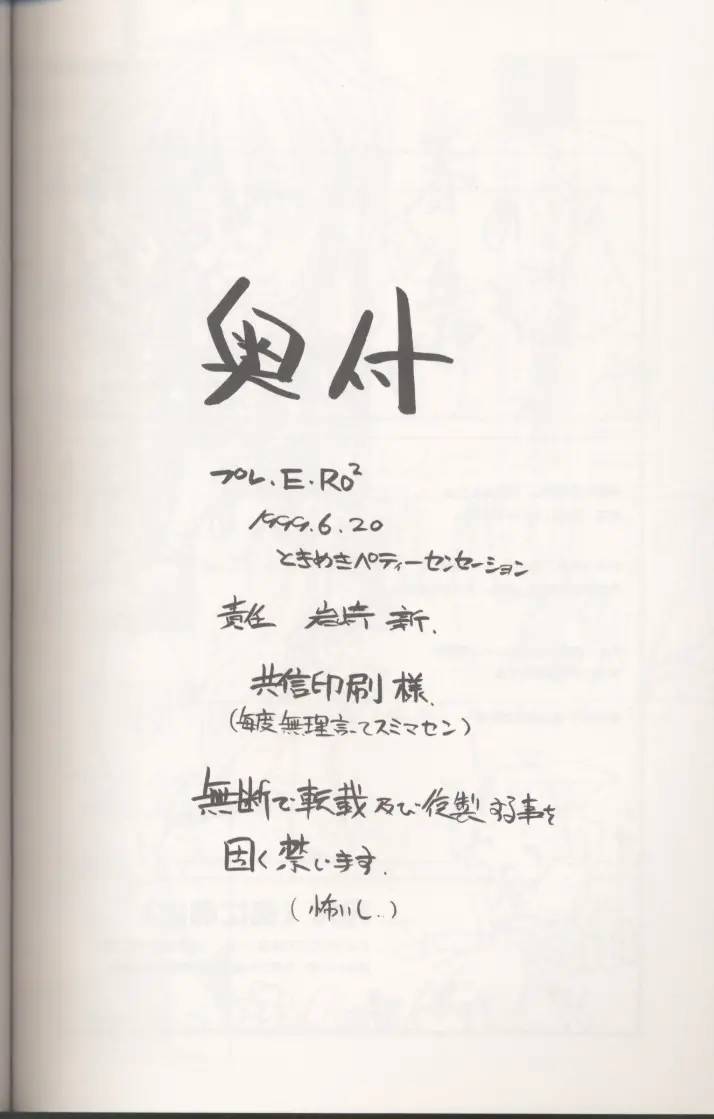 奥付
プレ.E.RO²
1999.6.20
ときめきペティーセンセーション
責任 岩崎 新.
共信印刷 様.
(毎度無理言ってスミマセン)
無断で転載及び複製する事を
固く禁じます.
(怖いし..)